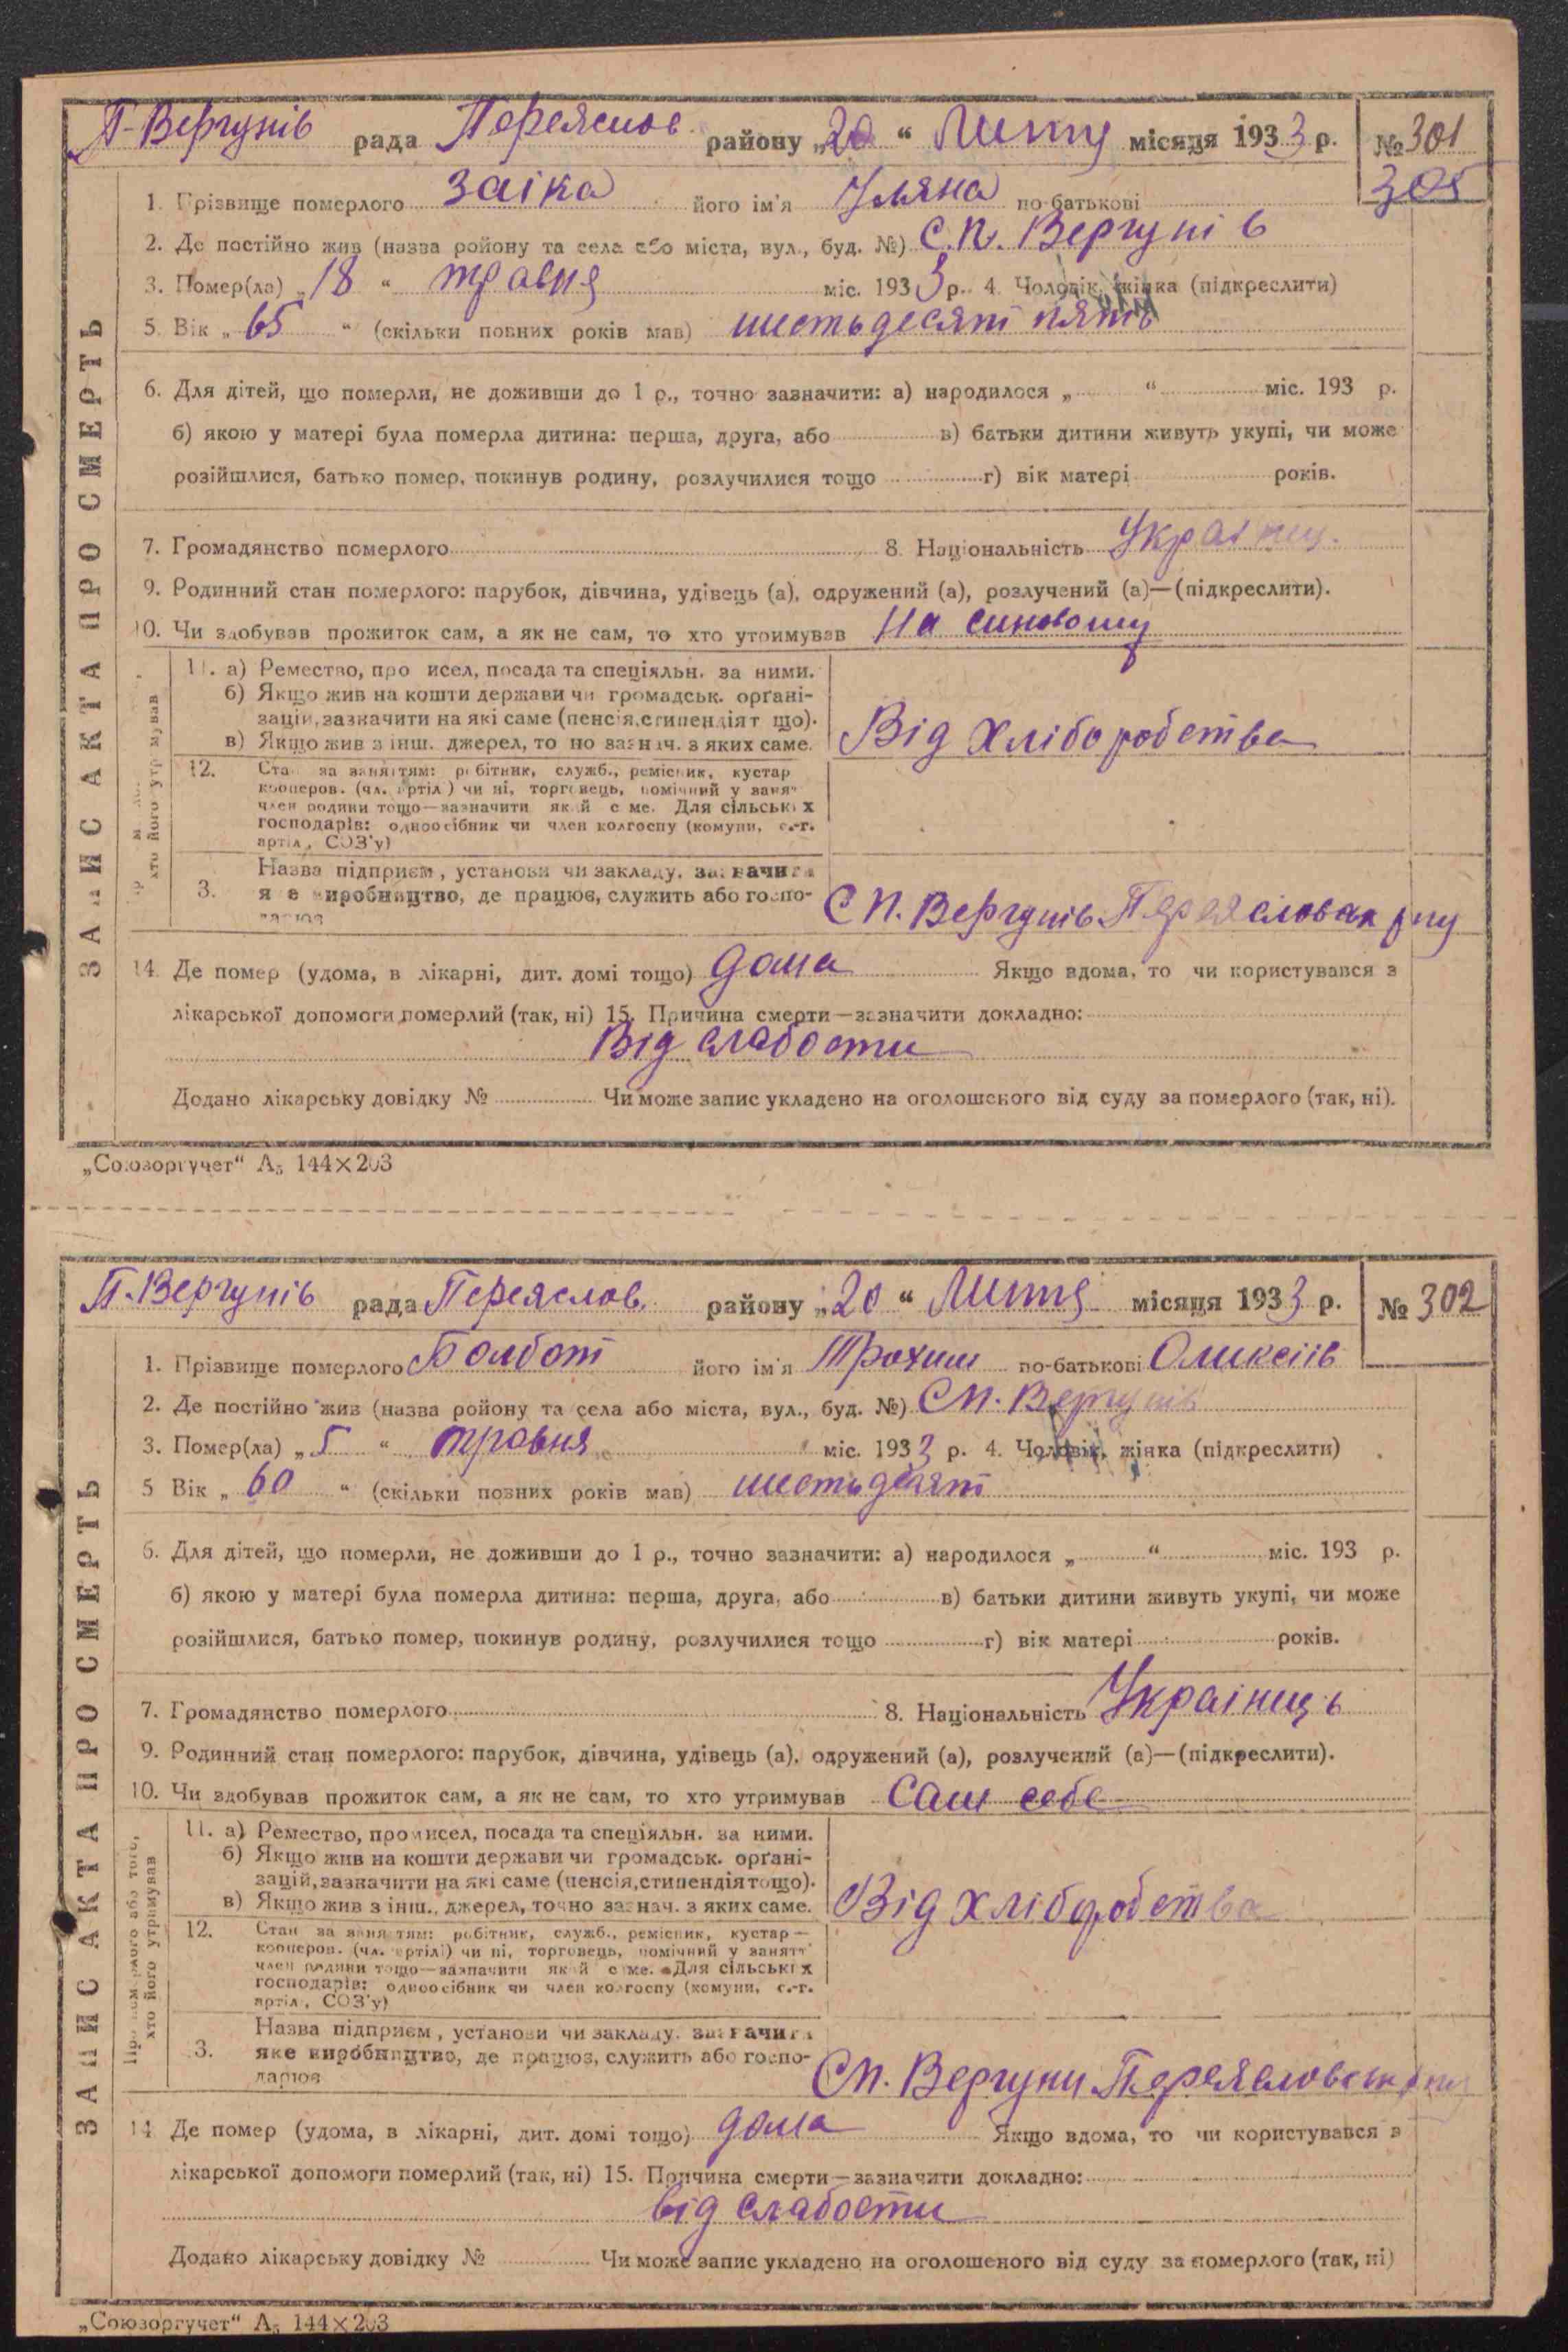 П-Вергунів рада Переяслов. району „20“ Липня місяця 1933 р. № 301
305
1. Прізвище померлого Заіка його ім'я Уляна по-батькові
2. Де постійно жив (назва району та села або міста, вул., буд. №) С.П. Вергунів
3. Помер(ла) „18“ травня міс. 1933 р. 4. Чоловік, жінка (підкреслити)
5. Вік „65“ (скільки повних років мав) шестьдесят пять
6. Для дітей, що померли, не доживши до 1 р., точно зазначити: а) народилося „ “ міс. 193 р.
б) якою у матері була померла дитина: перша, друга, або в) батьки дитини живуть укупі, чи може
розійшлися, батько помер, покинув родину, розлучилися тощо г) вік матері років.
7. Громадянство померлого 8. Національність Украінц.
9. Родинний стан померлого: парубок, дівчина, удівець (а), одружений (а), розлучений (а)—(підкреслити).
10. Чи здобував прожиток сам, а як не сам, то хто утримував На синовому
11. а) Ремество, про исел, посада та спеціяльн. за ними.
б) Якщо жив на кошти держави чи громадськ. орґані-
зацій, зазначити на які саме (пенсія, стипендія т що).
в) Якщо жив з інш. джерел, то но зазнач. з яких саме. Від Хліборобства
12. Стан за заняттям: робітник, служб., ремісник, кустар
кооперов. (чл. артілі) чи ні, торговець, помічний у занят
член родини тощо—зазначити який саме. Для сільських
господарів: одноосібник чи член колгоспу (комуни, с.-г.
артіл., СОЗ'у)
хто його утримував
Назва підприєм, установи чи закладу, зазначити
3. яке виробництво, де працює, служить або госпо-
дарює С П. Вергунів Переясловск рну
14. Де помер (удома, в лікарні, дит. домі тощо) дома Якщо вдома, то чи користувався з
лікарської допомоги померлий (так, ні) 15. Причина смерти—зазначити докладно:
Від слабости
Додано лікарську довідку № Чи може запис укладено на оголошеного від суду за померлого (так, ні).
ЗАПИС АКТА ПРО СМЕРТЬ
„Союзоргучет“ А₅ 144×203
П-Вергунів рада Переяслов. району „20“ Липня місяця 1933 р. № 302
1. Прізвище померлого Болбот його ім'я Трохим по-батькові Оликсіів
2. Де постійно жив (назва району та села або міста, вул., буд. №) СП. Вергунів
3. Помер(ла) „5“ травня міс. 1933 р. 4. Чоловік, жінка (підкреслити)
5 Вік „60“ (скільки повних років мав) шестьдесят
6. Для дітей, що померли, не доживши до 1 р., точно зазначити: а) народилося „ “ міс. 193 р.
б) якою у матері була померла дитина: перша, друга, або в) батьки дитини живуть укупі, чи може
розійшлися, батько помер, покинув родину, розлучилися тощо г) вік матері років.
7. Громадянство померлого 8. Національність Украінець
9. Родинний стан померлого: парубок, дівчина, удівець (а), одружений (а), розлучений (а)—(підкреслити).
10. Чи здобував прожиток сам, а як не сам, то хто утримував Сам себе
11. а) Ремество, промисел, посада та спеціяльн. за ними.
б) Якщо жив на кошти держави чи громадськ. орґані-
зацій, зазначити на які саме (пенсія, стипендія тощо).
в) Якщо жив з інш., джерел, точно зазнач. з яких саме. Від хліборобства
12. Стан за заняттям: робітник, служб., ремісник, кустар—
кооперов. (чл. артілі) чи ні, торговець, помічний у занятт
член родини тощо—зазначити який саме. Для сільських
господарів: одноосібник чи член колгоспу (комуни, с.-г.
артіл., СОЗ'у)
Про померлого або того,
хто його утримував
Назва підприєм, установи чи закладу, зазначити
3. яке виробництво, де працює, служить або госпо-
дарює СП. Вергуни Переясловськ рну
14 Де помер (удома, в лікарні, дит. домі тощо) дома Якщо вдома, то чи користувався з
лікарської допомоги померлий (так, ні) 15. Причина смерти—зазначити докладно:
від слабости
Додано лікарську довідку № Чи може запис укладено на оголошеного від суду за померлого (так, ні)
ЗАПИС АКТА ПРО СМЕРТЬ
„Союзоргучет“ А₅ 144×203